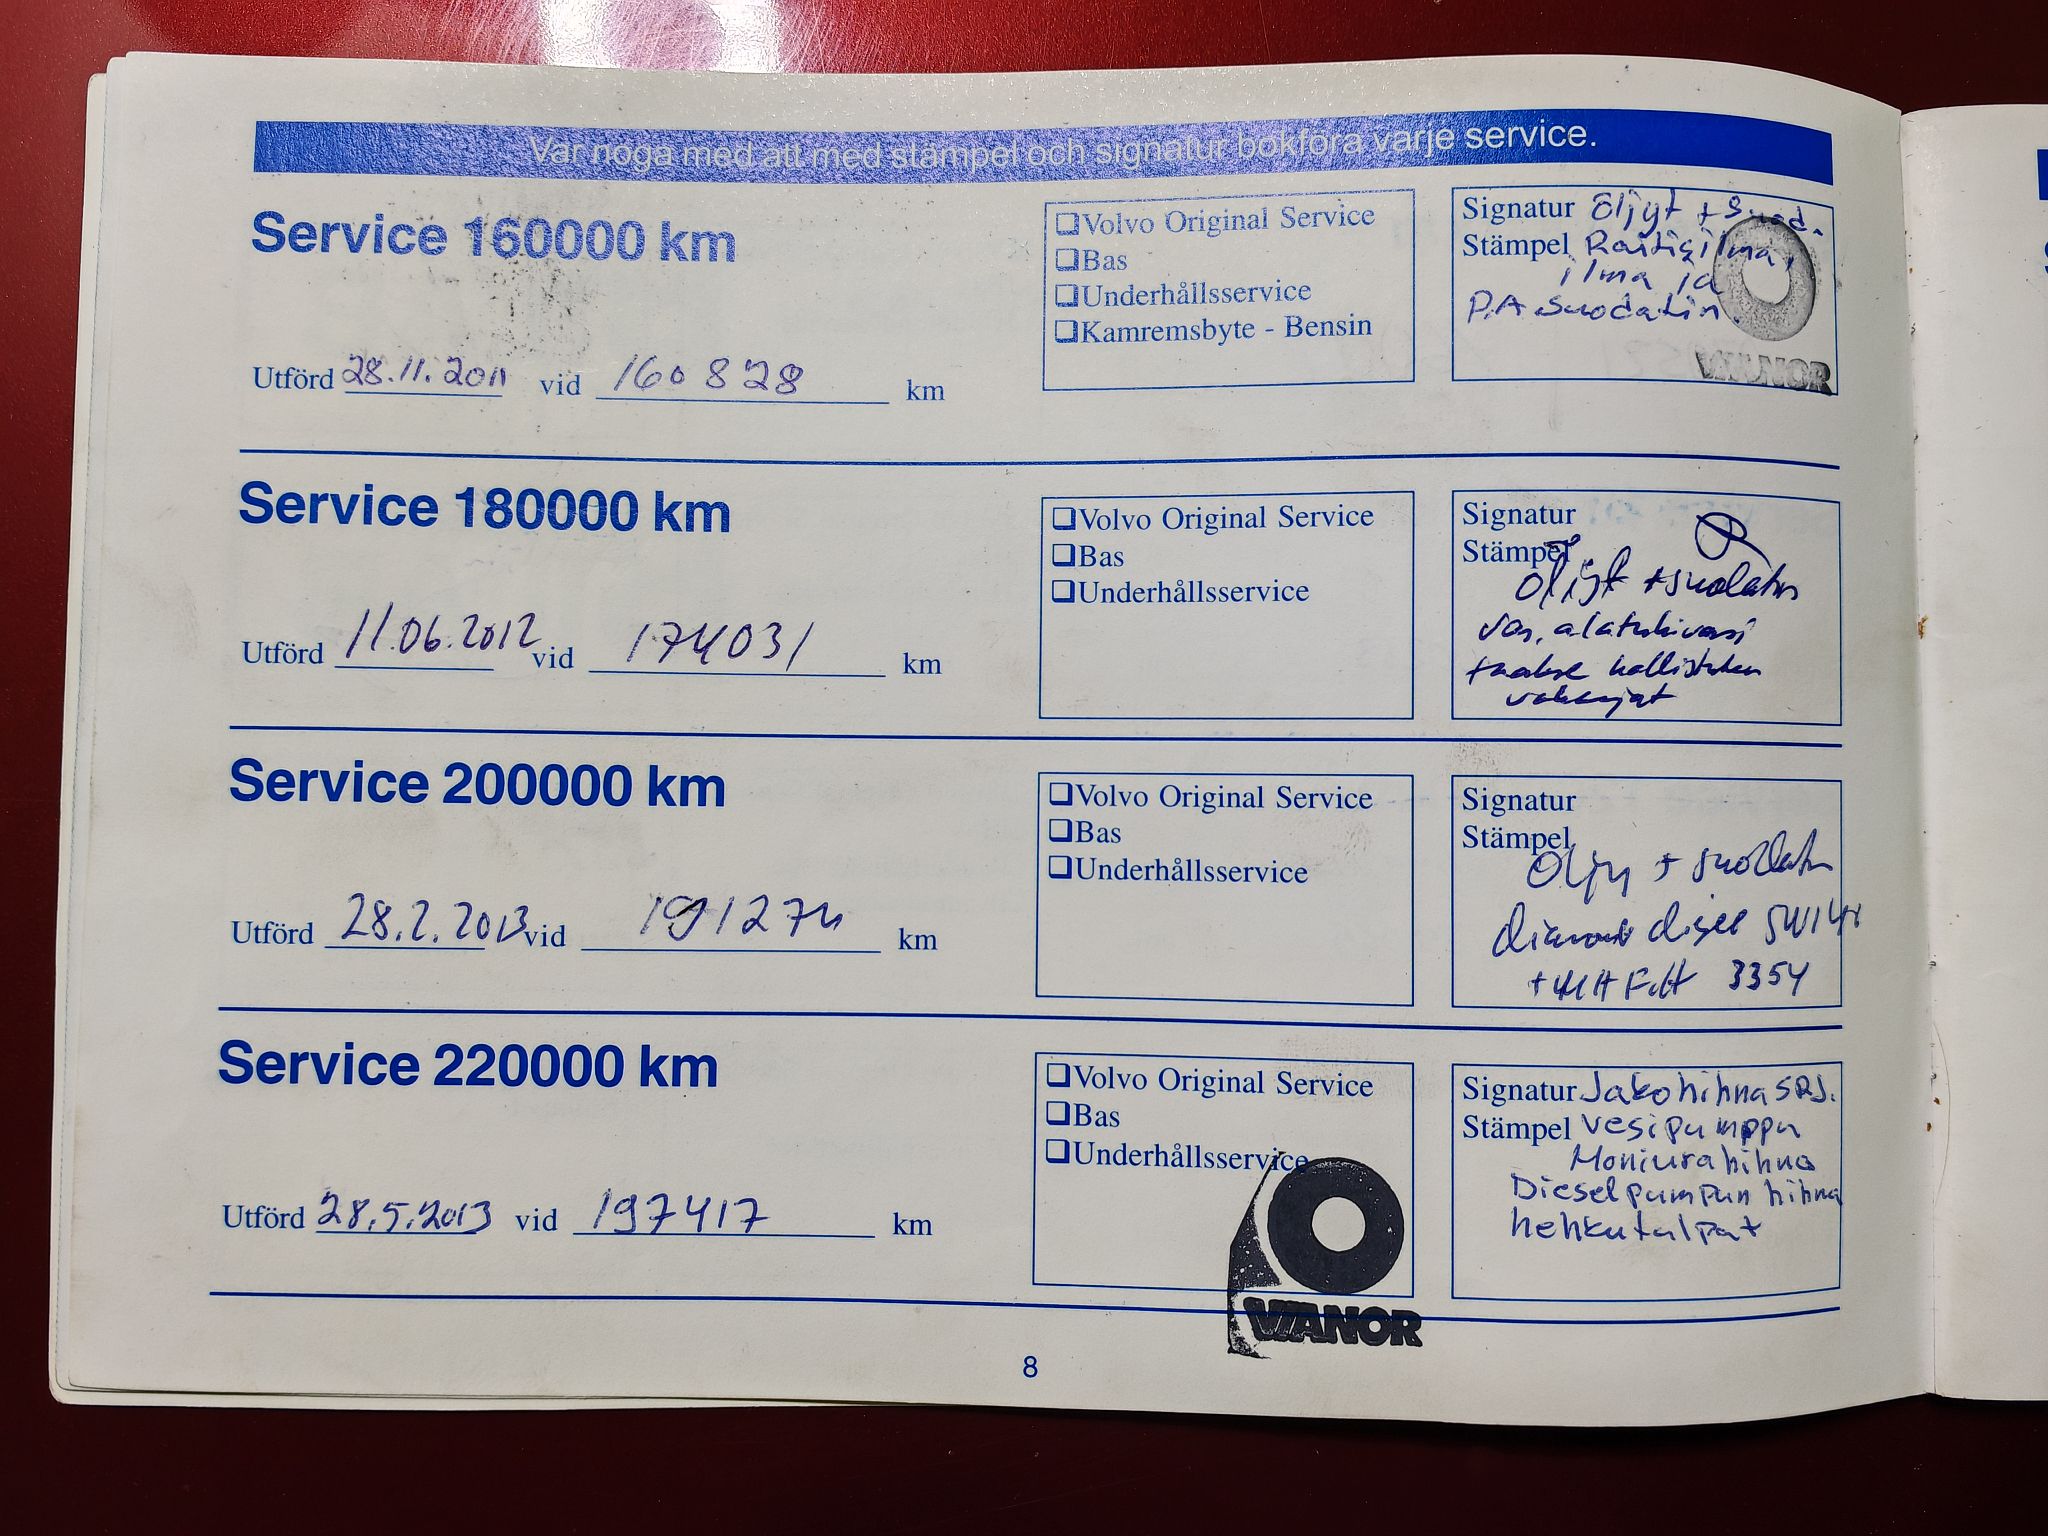 Var noga med att med stämpel och signatur bokföra varje service.
Service 160000 km
Utförd 28.11.2011 vid 160828 km
❏Volvo Original Service
❏Bas
❏Underhållsservice
❏Kamremsbyte - Bensin
Signatur Öljyt + Suod.
Stämpel Raitisilma,
ilma ja
P.A suodatin.
VIANOR
Service 180000 km
Utförd 11.06.2012 vid 174031 km
❏Volvo Original Service
❏Bas
❏Underhållsservice
Signatur
Stämpel
öljyt + suodatin
vas. alatukivarsi
+ taakse kallistuken
vakaajat
Service 200000 km
Utförd 28.2.2013 vid 191274 km
❏Volvo Original Service
❏Bas
❏Underhållsservice
Signatur
Stämpel
Öljy + suodatin
diesel
3354
Service 220000 km
Utförd 28.5.2013 vid 197417 km
❏Volvo Original Service
❏Bas
❏Underhållsservice
VIANOR
Signatur Jakohihna SRJ.
Stämpel Vesipumppu
Moniurahihna
Dieselpumpun hihna
hehkutulpat
8